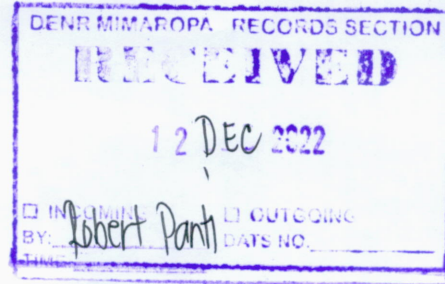 DENR MIMAROPA RECORDS SECTION
RECEIVED
12 DEC 2022
☐ INCOMING ☐ OUTGOING
BY: Robert DATS NO.
TIME